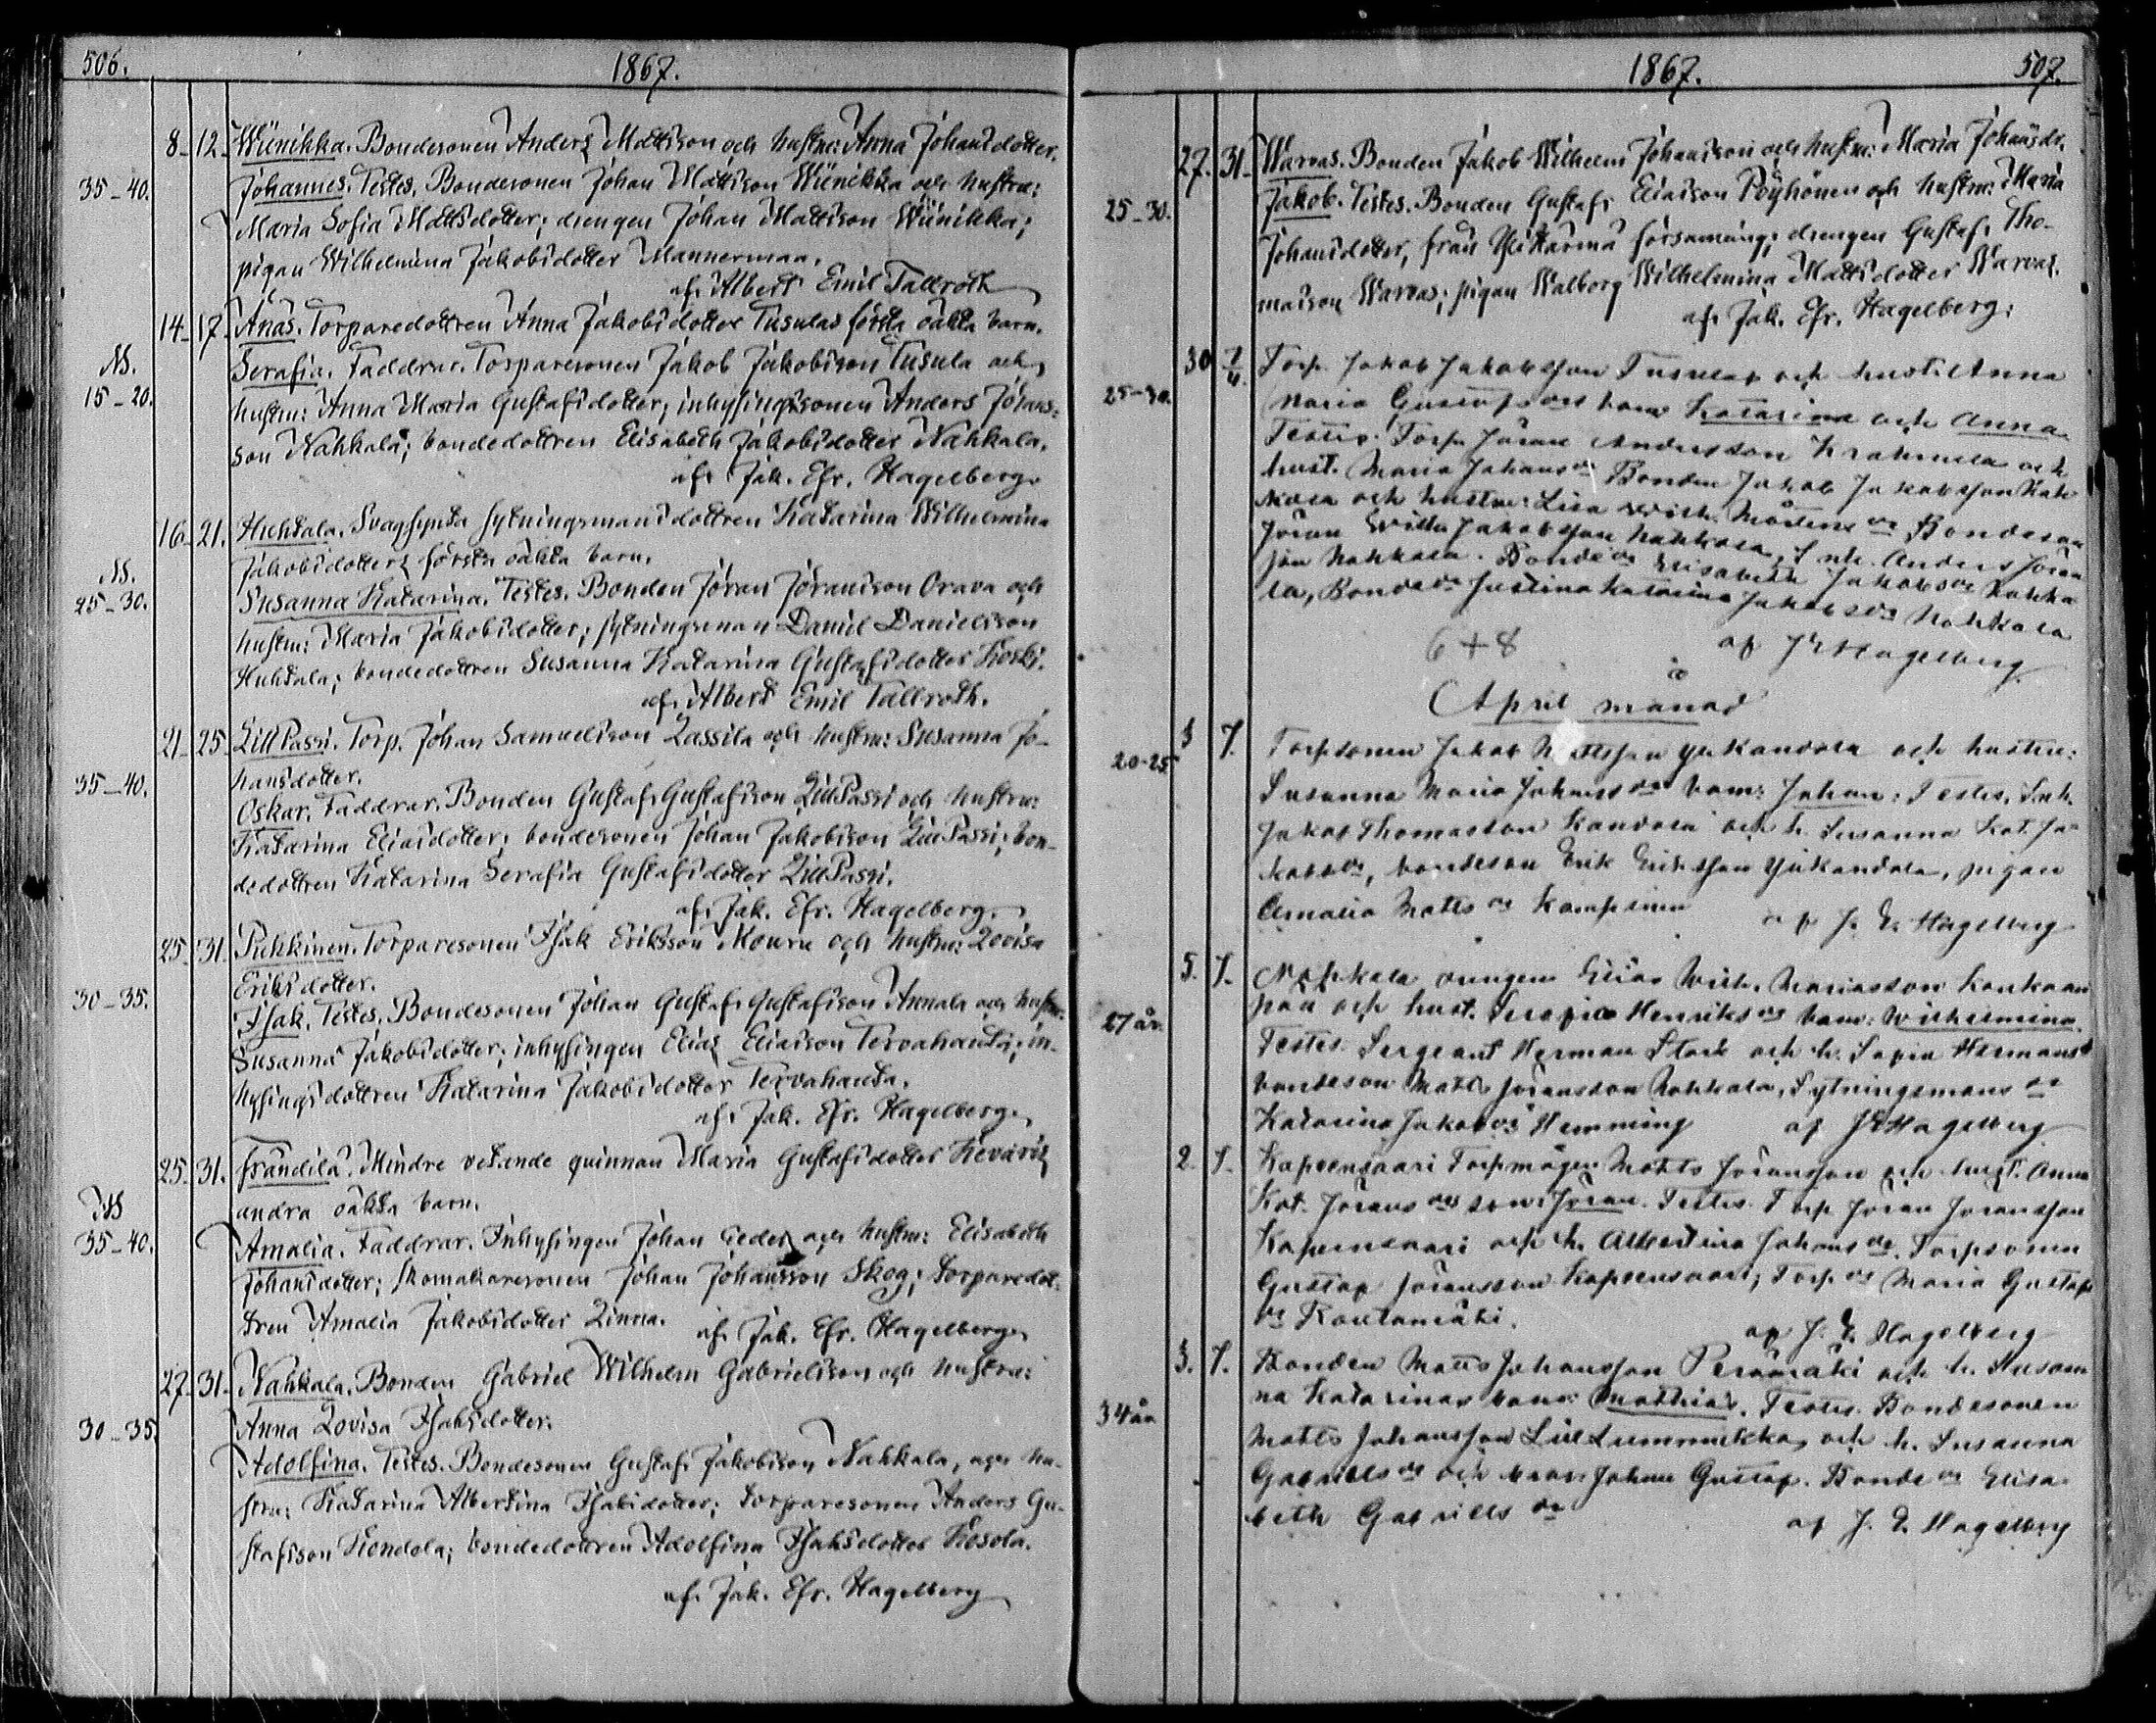 506.
1867.
8. 12. Wiinikka. Bondesonen Anders Mattsson och hustru: Anna Johansdotter.
35-40. Johannes. Testes. Bondesonen Johan Mattsson Wiinikka och hustru:
Maria Sofia Mattsdotter; drengen Johan Mattsson Wiinikka;
pigan Wilhelmina Jakobsdotter Mannermaa.
af Albert Emil Tallroth
14. 17. Ånäs. Torparedottren Anna Jakobsdotter Tusulas första oäkta barn.
NB.
15-20. Serafia. Faddrar. Torparesonen Jakob Jakobsson Tusula och
hustru: Anna Maria Gustafsdotter; inhysingssonen Anders Johans-
son Nahkala; bondedottren Elisabeth Jakobsdotter Nahkala.
af Jak. Efr. Hagelberg.
16. 21. Huhtala. Svagsynta sytningsmansdottren Katarina Wilhelmina
Jakobsdotters första oäkta barn.
NB.
25-30. Susanna Katarina. Testes. Bonden Jöran Jöransson Orava och
hustru: Maria Jakobsdotter; sytningsman Daniel Danielsson
Huhtala; bondedottren Susanna Katarina Gustafsdotter Koski.
af Albert Emil Tallroth.
21. 25. LillPassi. Torp. Johan Samuelsson Lassila och hustru: Susanna Jo-
hansdotter.
35-40. Oskar. Faddrar. Bonden Gustaf Gustafsson LillPassi och hustru:
Katarina Eliasdotter; bondesonen Johan Jakobsson LillPassi; bon-
dedottren Katarina Serafia Gustafsdotter LillPassi.
af Jak. Efr. Hagelberg.
25. 31. Puhkinen. Torparesonen Isak Eriksson Mouru och hustru: Lovisa
Eriksdotter.
30-35. Isak. Testes. Bondesonen Johan Gustaf Gustafsson Annala och hustru:
Susanna Jakobsdotter; inhysingen Elias Eliasson Tervahauta; in-
hysingsdottren Katarina Jakobsdotter Tervahauta.
af Jak. Efr. Hagelberg.
25. 31. Frändilä. Mindre vetande quinnan Maria Gustafsdotter
andra oäkta barn.
NB
35-40. Amalia. Faddrar. Inhysingen Johan och hustru: Elisabeth
Johansdotter; skomakaresonen Johan Johansson Skog; torparedot-
tren Amalia Jakobsdotter Linna.
af Jak. Efr. Hagelberg.
27. 31. Nahkala. Bonden Gabriel Wilhelm Gabrielsson och hustru:
30-35. Anna Lovisa Isaksdotter.
Adolfina. Testes. Bondesonen Gustaf Jakobsson Nahkala, och hu-
stru: Katarina Albertina Isaksdotter; torparesonen Anders Gu-
stafsson Kondola; bondedottren Adolfina Isaksdotter Kosola.
af Jak. Efr. Hagelberg
1867.
507.
27. 31. Warvas. Bonden Jakob Wilhelm Johansson och hustru: Maria Johansdr.
25-30. Jakob. Testes. Bonden Gustaf Eliasson Pöyhönen och hustru: Maria
Johansdotter, från församling; drengen Gustaf Tho-
masson Warvas; pigan Walborg Wilhelmina Mattsdotter Warvas.
af Jak. Efr. Hagelberg.
30 7/4. Torp. Jakob Jakobsson Tusula och hust: Anna
25-30. Maria Gustafsdrs barn Katarina och Anna.
Testes. Torp. Jöran Andersson och
hust. Maria Johansdr Bonden Jakob Jakobsson Nah
kala och hustru: Lisa Wilh. Mårtensdr Bondeson
Jöran Wilh. Jakobsson Nahkala, Inh. Anders Jöran
son Nahkala. Bondedr Elisabeth Jakobsdr Nahka
la, Bondedr Justina Katarina Jakobsdr Nahkala
6+8 af J E Hagelberg
April månad
3 7. Torpsonen Jakob Mattsson Ylikandola och hustru:
20-25 Susanna Maria Johansdrs barn: Johan: Testes. Inh.
Jakob Thomasson Kandola och h. Susanna Kat. Ja
kobsdr, bondeson Erik Eriksson Ylikandola, pigan
Amalia Mattsdr Kampinen
af J. E. Hagelberg
5. 7. Nahkala drengen Elias Wilh. Mariasson Kankaan
27 år. pää och hust. Serafia Henriksdrs barn: Wilhelmina
Testes. Sergeant Herman Stark och h. Sofia Hermansdr
bondeson Matts Jöransson Nahkala, Sytningsmansdr
Katarina Jakobsdr Hemming af J E Hagelberg
2. 7. Kapeensaari Torpmågen Matts Jöransson och hust. Anna
Kat. Jöransdrs son: Jöran. Testes. Torp Jöran Jöransson
Kapeensaari och h. Albertina Johansdr. Torpsonen
Gustaf Jöransson Kapeensaari; Torp. dr Maria Gustafs
dr Rautamäki.
af J. E. Hagelberg
3. 7. Bonden Matts Johansson Perämäki och h. Susan
34 år na Katarinas barn: Mathias. Testes. Bondesonen
Matts Johansson LillLummukka och h. Susanna
Gabrielsdr och Johan Gustaf. Bondedr Elisa
beth Gabrielsdr
af J. E. Hagelberg